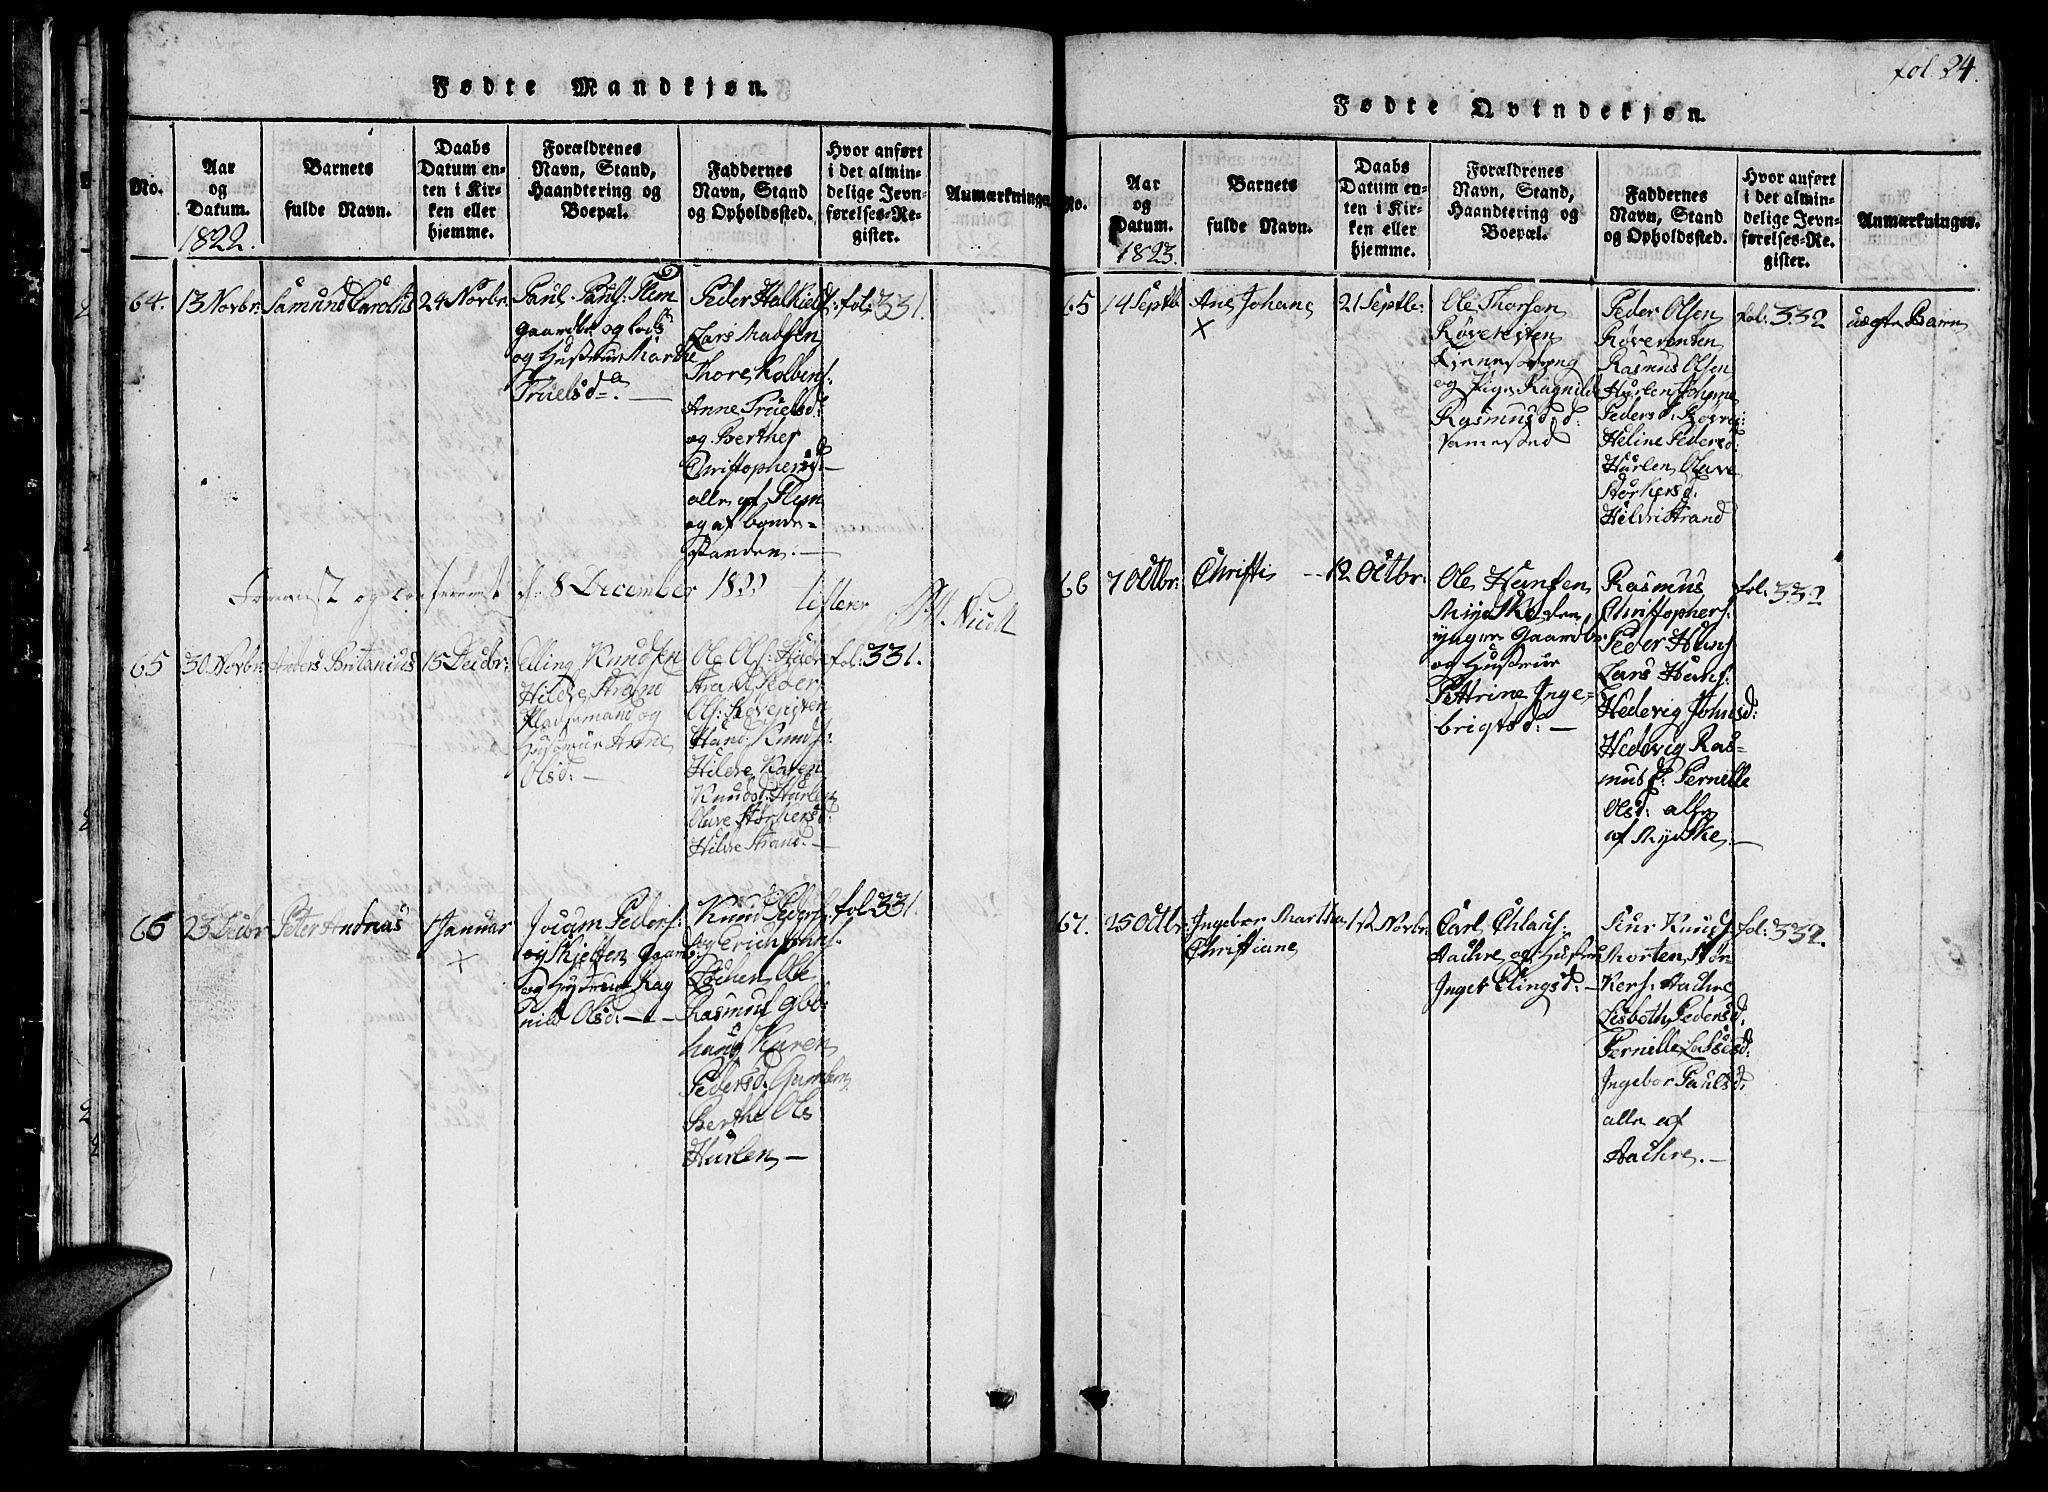 Fødte Mandkjøn.
No.
Aar
og
Datum.
1822.
Barnets
fulde Navn.
Daabs
Datum en-
ten i Kir-
ken eller
hjemme.
Forældrenes
Navn, Stand,
Haandtering og
Boepæl.
Faddernes
Navn, Stand
og Opholdssted.
Hvor anført
i det almin-
delige Jevn-
førelses-Re-
gister.
Anmærkninger
64.
13 Novbr:
Samund Carolus
24 Novbr:
Paul Pauls: Flem
Gaardbr og Lods
og Hustrue Marthe
Truelsd.
Peder Halkields:
Lars Madsen
Thore Kolbens:
Anne Truelsd:
og Berthe
Christophersd:
alle af Flem
og af bonde-
standen.
fol: 331.
8 December 1822
65
30 Novbr:
Anders Britanius
15 Decbr:
Elling Knudsen
Hildre Strand
Pladsmand og
Hustrue Anne
Olsd:
Ole Ols: Hildre
Strand Peder
Ols: Røvereten
Hans Knuds:
Hildre Karen
Knudsd: Hurlen
Olave Storkersd:
Hildre Strand.
fol: 331.
66
23 Decbr
Peter Andreas
1 Januar
+
Jocum Peders:
og Skjelten Gaard
og Hustrue Rag
nild Olsd:
Knud Peders:
og Erich
Ole
Rasmus
haug Karen
Pedersd: Gamlem
Berthe Ols
Hurlen
fol 331.
fol 24.
Fødte Qvindekjøn.
No.
Aar
og
Datum.
1823.
Barnets
fulde Navn.
Daabs
Datum en-
ten i Kir-
ken eller
hjemme.
Forældrenes
Navn, Stand,
Haandtering og
Boepæl.
Faddernes
Navn, Stand
og Opholdssted.
Hvor anført
i det almin-
delige Jevn-
førelses-Re-
gister.
Anmærkninger.
65
14 Septb
Ane Johane
+
21 Septb:
Ole Thorsen
Røvereten
Tjenestdreng
og Pige Ragnild
Rasmusd:
sammested
Peder Olsen
Røvereten
Rasmus Olsen
Hurlen Johanne
Pedersd: Røver:
Heline Pedersd:
Hurlen Olave
Storkersd:
Hildrestrand
fol: 332
uægte Barn
66
7 Octbr:
Christi
12 Octbr:
Ole Hansen
Myhskeden
yngre Gaardbr:
og Hustrue
Pettrine Inge-
brigtsd:
Rasmus
Christophers:
Peder Hans:
Lars Hans:
Hedevig Johnsd:
Hedevig Ras-
musd: Pernille
Olsd: alle
af Mydske.
fol: 332
67.
25 Octbr:
Ingebor Martha
Christiane
1ste Novbr:
Carl Chlaus:
Aachre og Hustru
Inger Elingsd:
Siur Knuds:
Morten Stor-
kers: Aachre
Lisbeth Pedersd:
Pernille Lassesd:
Ingebor Paulsd:
alle af
Aachre.
fol: 332.